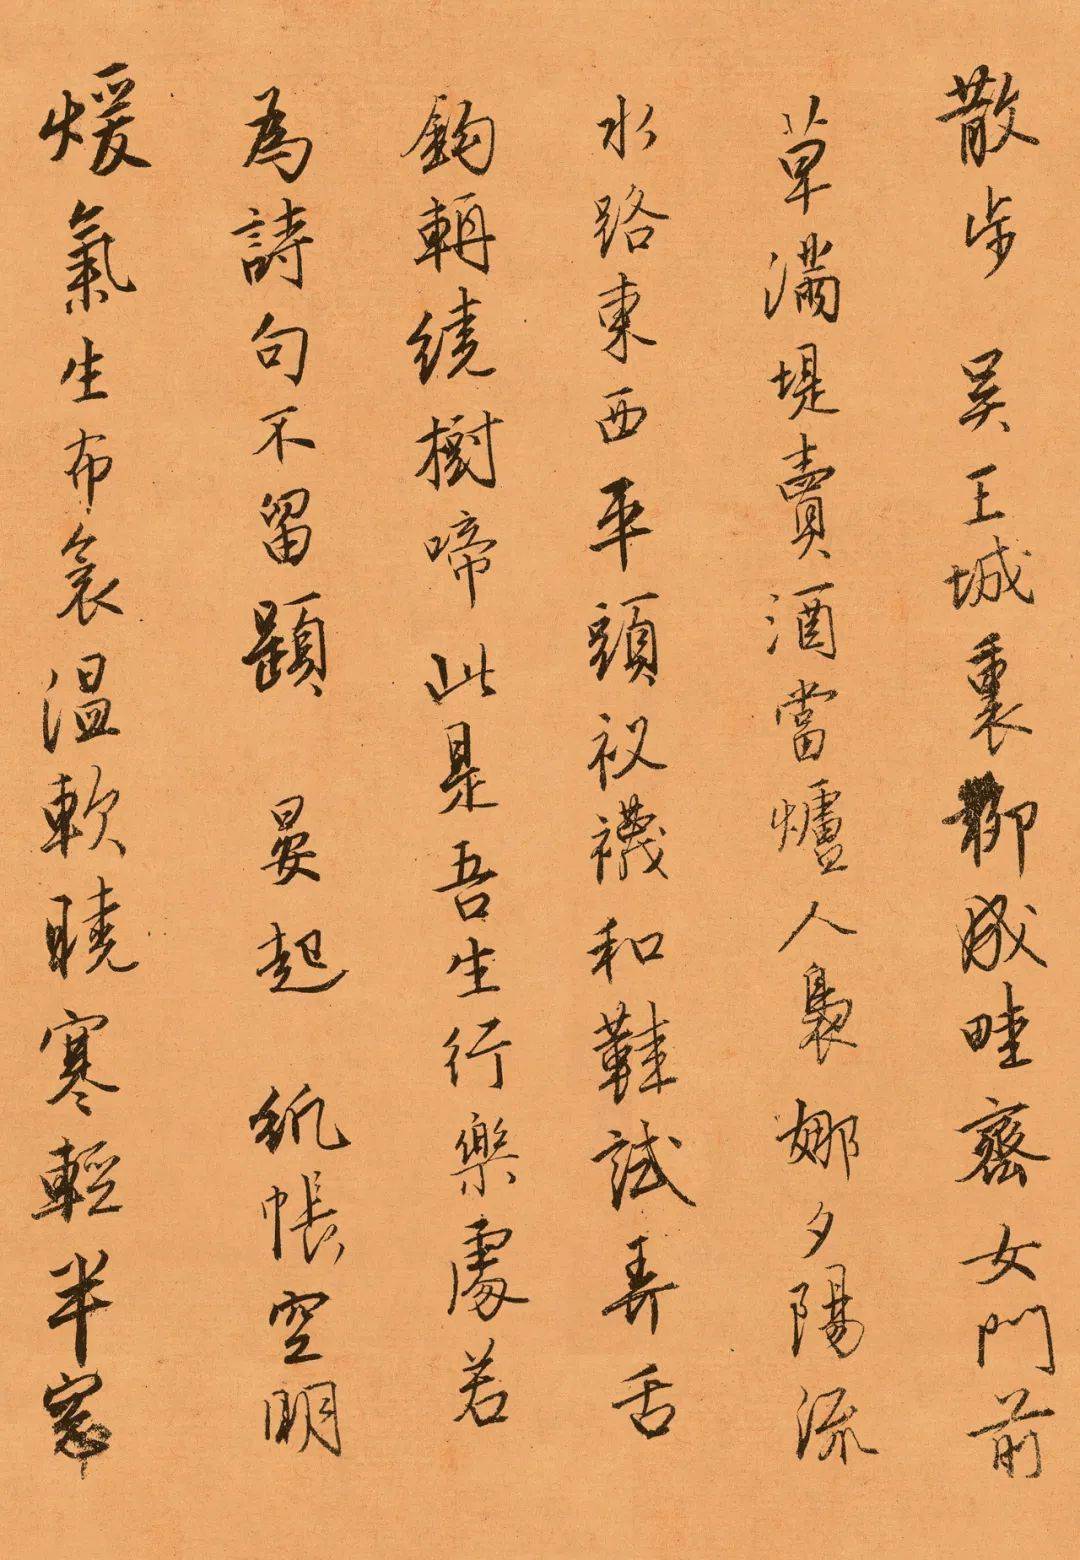 散步 吳王城裏柳成畦齊女門前
草滿堤賣酒當爐人裊娜夕陽流
水路東西平頭衩襪和鞋試弄舌
鉤輈繞樹啼此是吾生行樂處若
為詩句不留題 晏起 紙帳空明
煖氣生布衾温軟曉寒輕半窓